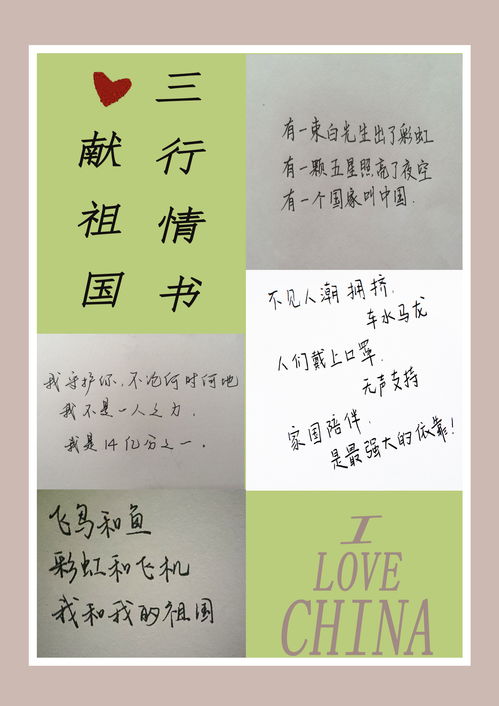 三行情书
献祖国
有一束白光生出了彩虹
有一颗五星照亮了夜空
有一个国家叫中国.
不见人潮拥挤.
车水马龙
人们戴上口罩.
无声支持
家国陪伴.
是最强大的依靠!
我守护你,不论何时何地
我不是一人之力.
我是14亿分之一.
飞鸟和鱼
彩虹和飞机
我和我的祖国
I
LOVE
CHINA